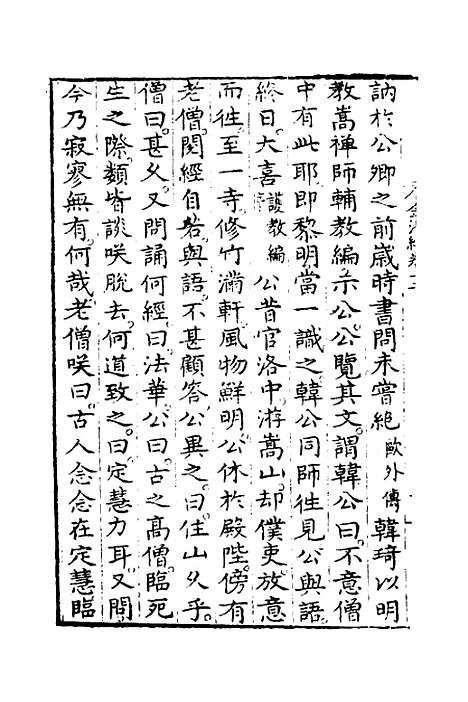 訥於公卿之前歲時書問未嘗絶歐外傳韓琦以明
教嵩禅師輔教編示公公覽其文謂韓公曰不意僧
中有此耶即黎明當一識之韓公同師徃見公與語
終日大喜護教編序公昔官洛中游嵩山却僕吏放意
而徃至一寺修竹滿軒風物鮮明公休於殿陛傍有
老僧閱經自若與語不甚顧答公異之曰住山乆乎
僧曰甚乆又問誦何經曰法華公曰古之高僧臨死
生之際類皆談咲脫去何道致之曰定慧力耳又問
今乃寂寥無有何哉老僧咲曰古人念念在定慧臨